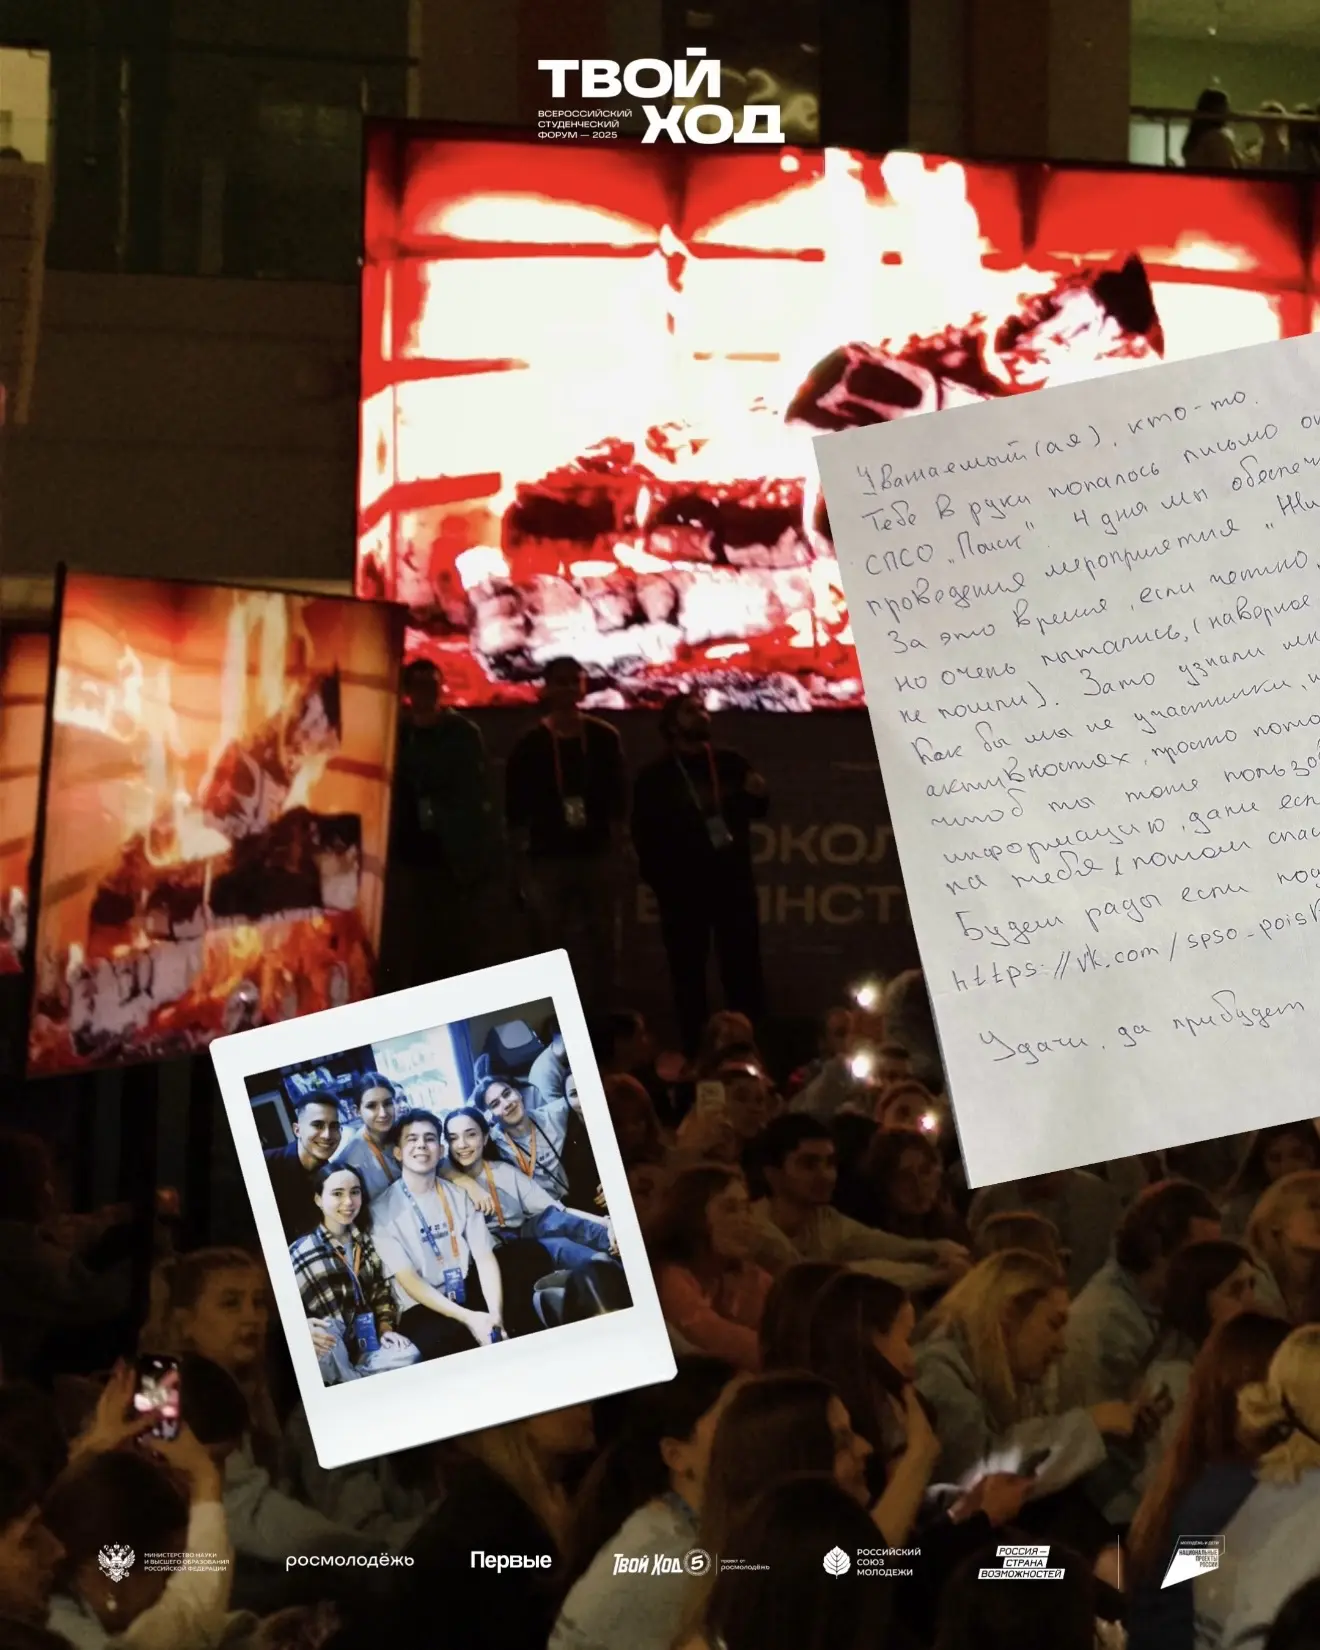 ТВОЙ
ХОД
ВСЕРОССИЙСКИЙ
СТУДЕНЧЕСКИЙ
ФОРУМ — 2025
Уважаемый(ая), кто-то.
Тебе в руки попалось письмо
СПСО „Поиск“. 4 дня мы обеспеч
проведения мероприятия „
За это время, если честно,
но очень пытались, (наверное
не пошли). Зато узнали
Как бы мы не участники,
активностях, просто
чтоб ты тоже пользов
информацию, даже есл
на тебя (потом спас
Будем рады если под
https://vk.com/spso-poisk
Удачи, да прибудет
ОКОЛ
ИНСТ
МИНИСТЕРСТВО НАУКИ
И ВЫСШЕГО ОБРАЗОВАНИЯ
РОССИЙСКОЙ ФЕДЕРАЦИИ
росмолодёжь
Первые
Твой Ход 5
проект от
росмолодёжь
РОССИЙСКИЙ
СОЮЗ
МОЛОДЕЖИ
РОССИЯ —
СТРАНА
ВОЗМОЖНОСТЕЙ
МОЛОДЕЖЬ И ДЕТИ
НАЦИОНАЛЬНЫЕ
ПРОЕКТЫ
РОССИИ